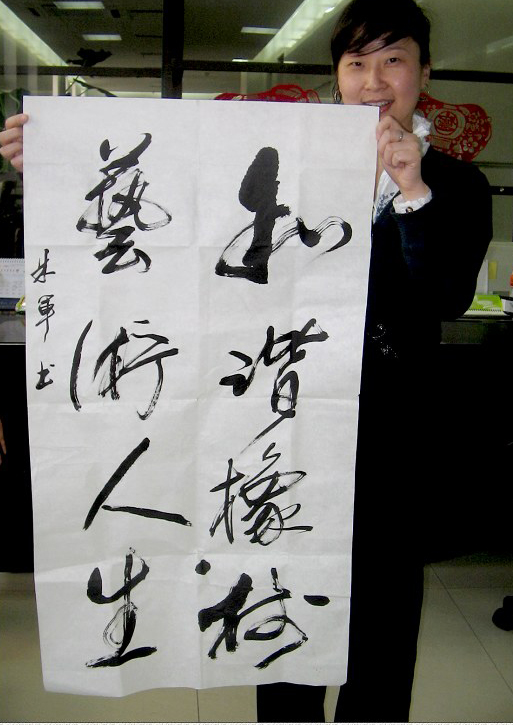 和谐橡树
藝術人生
朱軍书